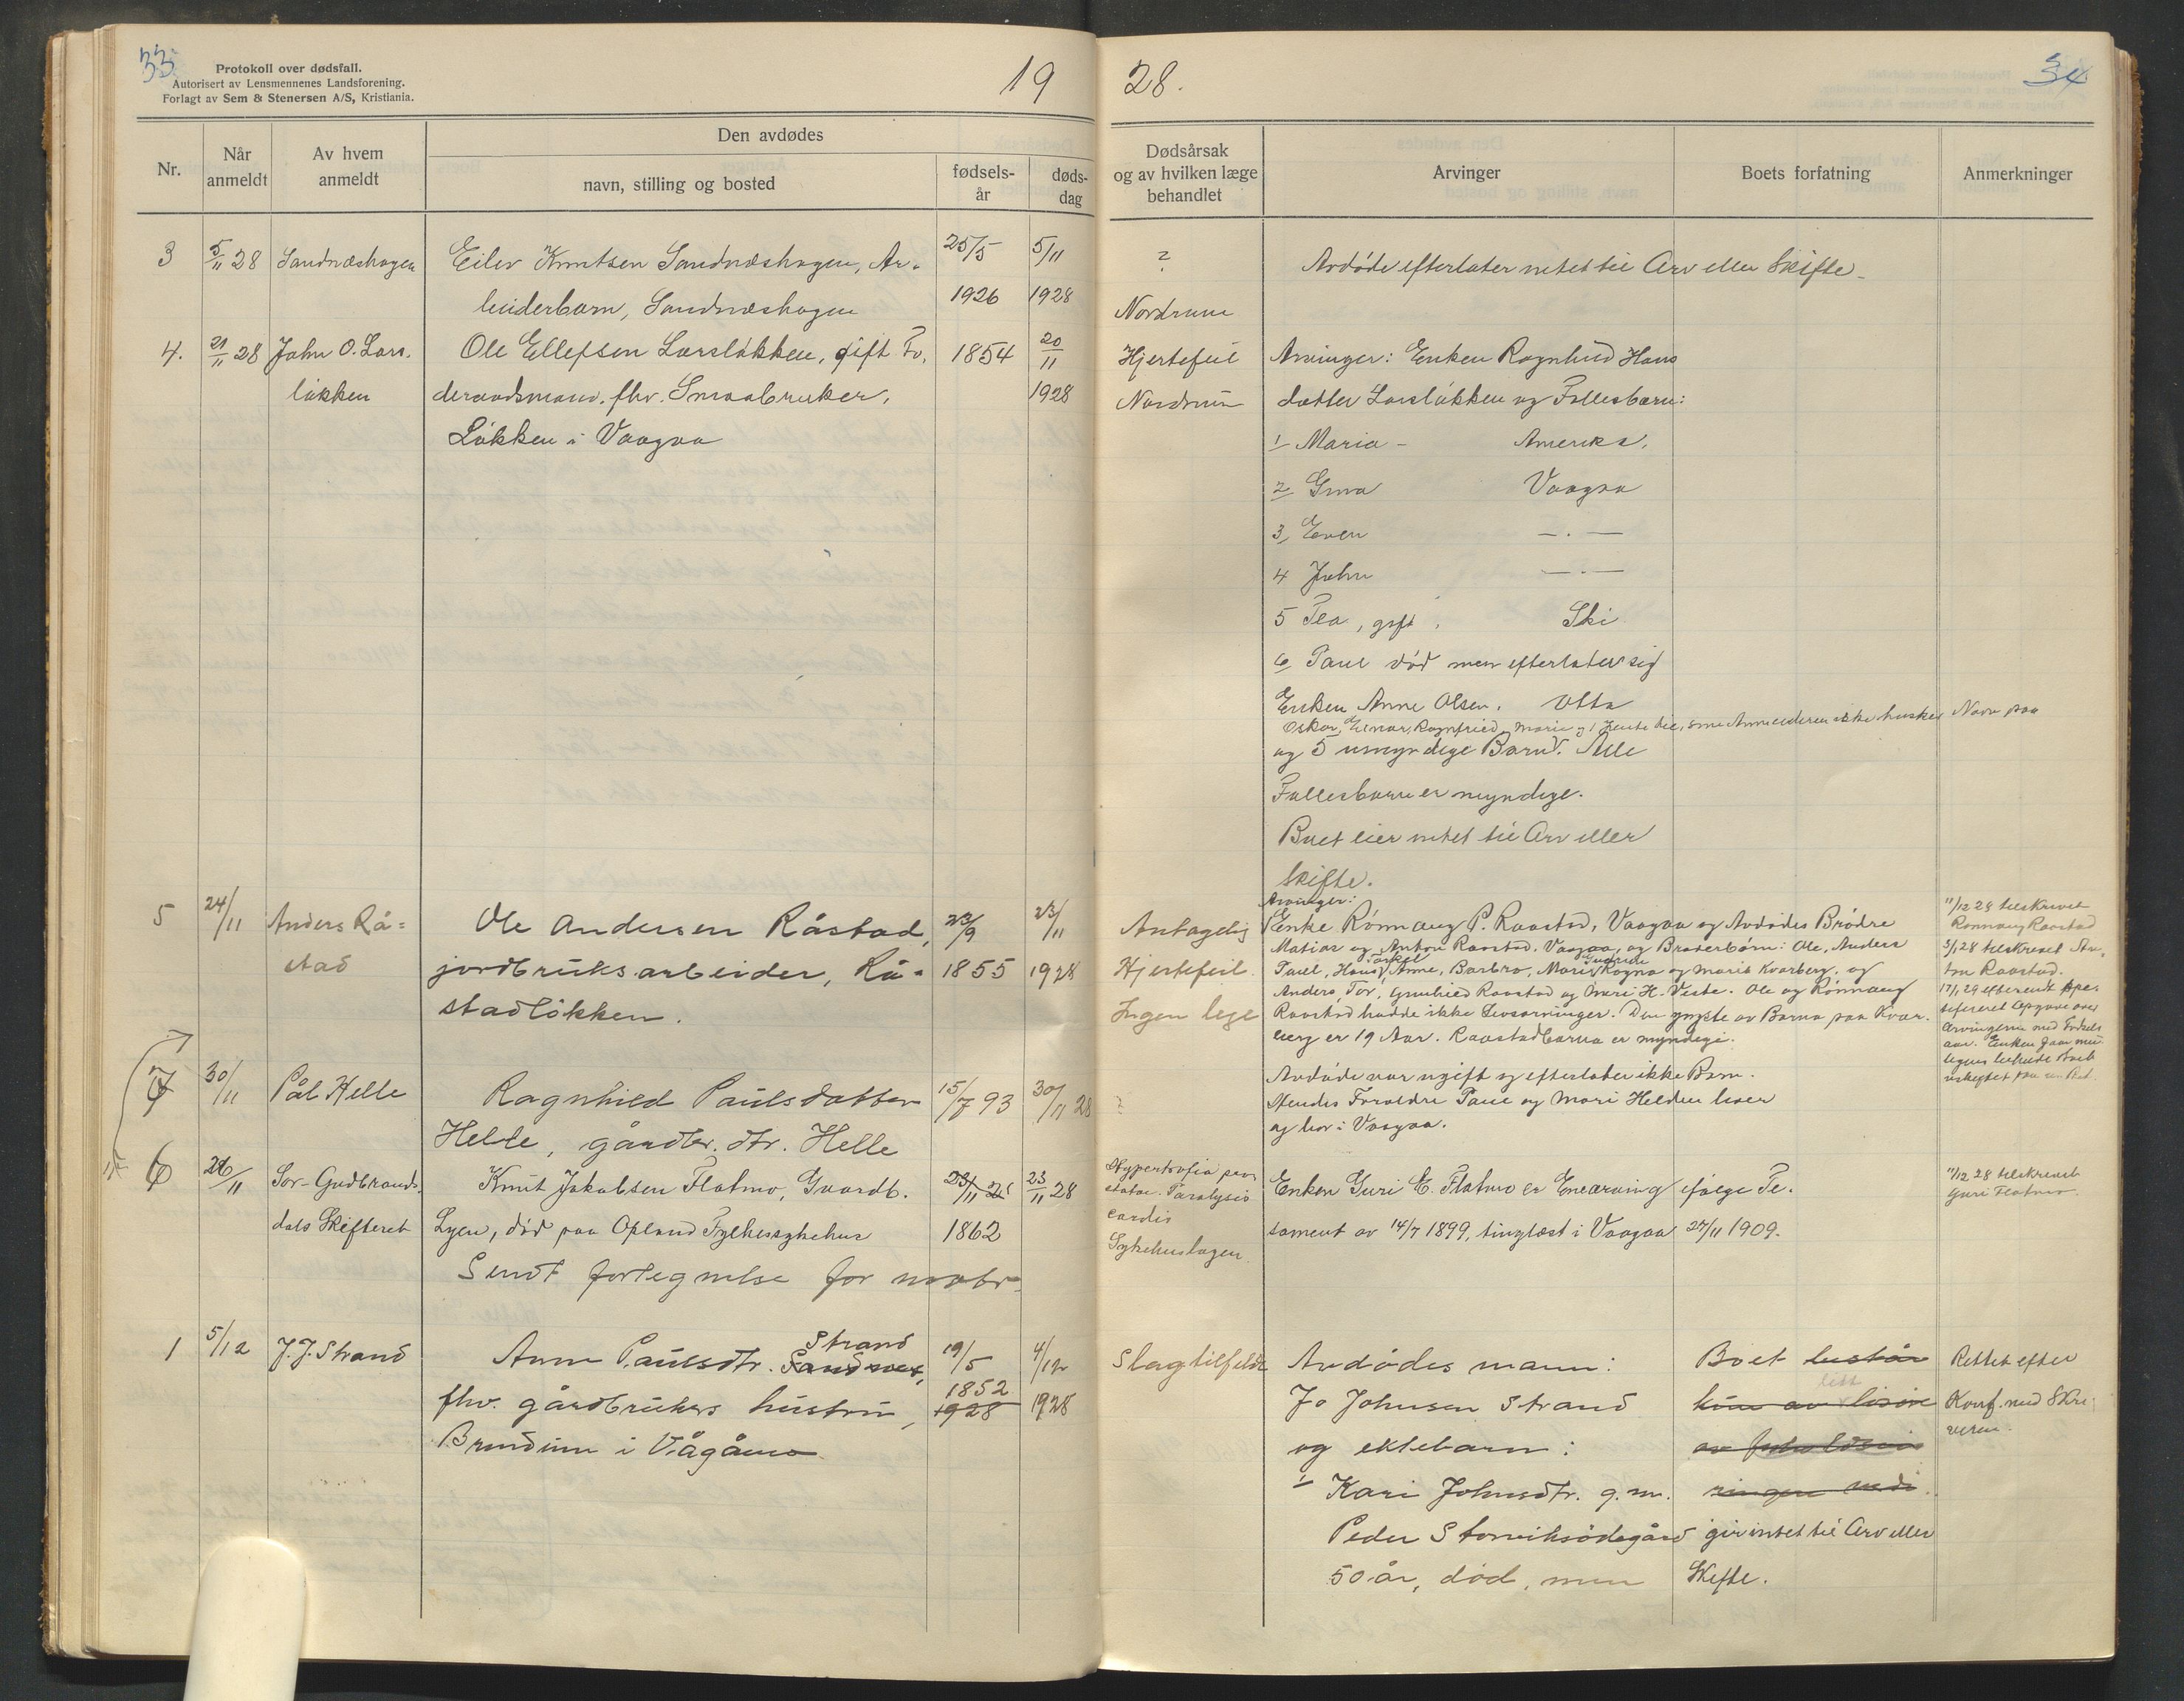 33
Protokoll over dødsfall.
Autorisert av Lensmennenes Landsforening.
Forlagt av Sem & Stenersen A/S, Kristiania.
19
28.
34
Nr.
Når anmeldt
Av hvem anmeldt
Den avdødes
navn, stilling og bosted
fødsels-år
døds-dag
Dødsårsak og av hvilken læge behandlet
Arvinger
Boets forfatning
Anmerkninger
3
5/11 28
Sandnæshagen
Eilev Knutsen Sandnæshagen, Ar-
beiderbarn, Sandnæshagen
25/5
1926
5/11
1928
?
Nordrum
Avdøde efterlater intet til Arv eller Skifte.
4.
21/11 28
John O. Lars-
løkken
Ole Ellefsen Larsløkken, gift Fo-
deraadsmand, fhv. Smaabruker,
Løkken i Vaagaa
1854
20/11
1928
Hjertefeil
Nordrum
Arvinger: Enken Ragnhild Hans
datter Larsløkken og Fællesbarn:
1/ Maria - Amerika.
2 Gina Vaagaa
3, Even — . —
4 John — —
5 Tea, gift, Ski
6 Paul død men efterlater sig
Enken Anne Olsen, Otta
Oskar, Einar, Ragnfried, Marie og 1 Jente til, som Anmelderen ikke husker Navn paa
og 5 umyndige Barn. Alle
Fællesbarn er myndige.
Boet eier intet til Arv eller
Skifte.
5
24/11
Anders Rå=
stad
Ole Andersen Råstad,
jordbruksarbeider, Rå-
stadløkken.
23/9
1855
23/11
1928
Antagelig
Hjertefeil.
Ingen lege
Arvinger:
Enke Rønnaug P. Raastad, Vaagaa og Avdødes Brødre
Matias og Anton Raastad, Vaagaa, og Broderbørn: Ole, Anders
Torkel
Paul, Hans, Anne, Barbro, Mari, Ragna og Marit Kvarberg, og
Anders, Tor, Gunhild Raastad og Mari H. Veste. Ole og Rønnaug
Raastad hadde ikke Livsarvinger. Den yngste av Barna paa Kvar-
berg er 19 Aar. Raastadbarna er myndige.
11/12 28 tilskrevet
Rønnaug Raastad
5/1 28 tilskrevet An-
ton Raastad.
17/1 29 efterendt spe-
sifiseret Opgave over
Arvingerne med Fødsels
aar.
7
30/11
Pål Helle
Ragnhild Paulsdatter
Helle, gårdbr. dtr. Helle
15/7 93
30/11 28
?
Avdøde var ugift og efterlater ikke Barn.
Hendes Forældre Paul og Mari Helle lever
og bor i Vaagaa.
6
26/11
Sør-Gudbrands-
dals Skifteret
Knut Jakobsen Flatmo, Gaardb.
Lyen, død paa Opland Fylkessykehus
Sendt fortegnelse for novbr.
23/11
1862
23/11 28
Hypertrofia pro-
statae. Paralysis
cordis
Sykehuslægen
Enken Guri E. Flatmo er Enearving ifølge Te-
stament av 14/7 1899, tinglæst i Vaagaa 27/11 1909.
11/12 28 tilskrevet
Guri Flatmo.
1
5/12
J. J. Strand
Strand
Anne Paulsdtr. Sandnes,
fhv. gårdbrukers hustru,
Brudinn i Vågåmo
19/5
1852
1928
4/12
1928
Slagtilfelde
Avdødes mann:
Jo Johnsen Strand
og ektebarn:
1/ Kari Johnsdtr. g.m.
Peder Storviksødegård
50 år, død, men
Boet består
litt
kun av lisøre
gir intet til Arv eller
Skifte.
Rettet efter
Konf. med Skri-
veren.